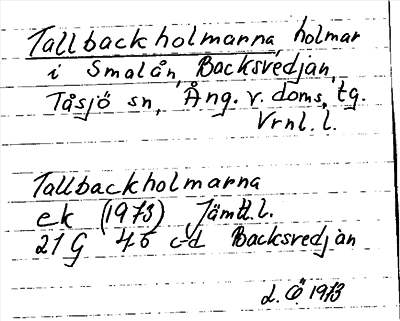 Tallbackholmarna holmar
i Smalån, Backsvedjan,
Tåsjö sn, Ång. v. doms. tg.
Vrnl. l.
Tallbackholmarna
ek (1973) Jämtl. l.
21G 4b c-d Backsvedjan
L. Ö 1973